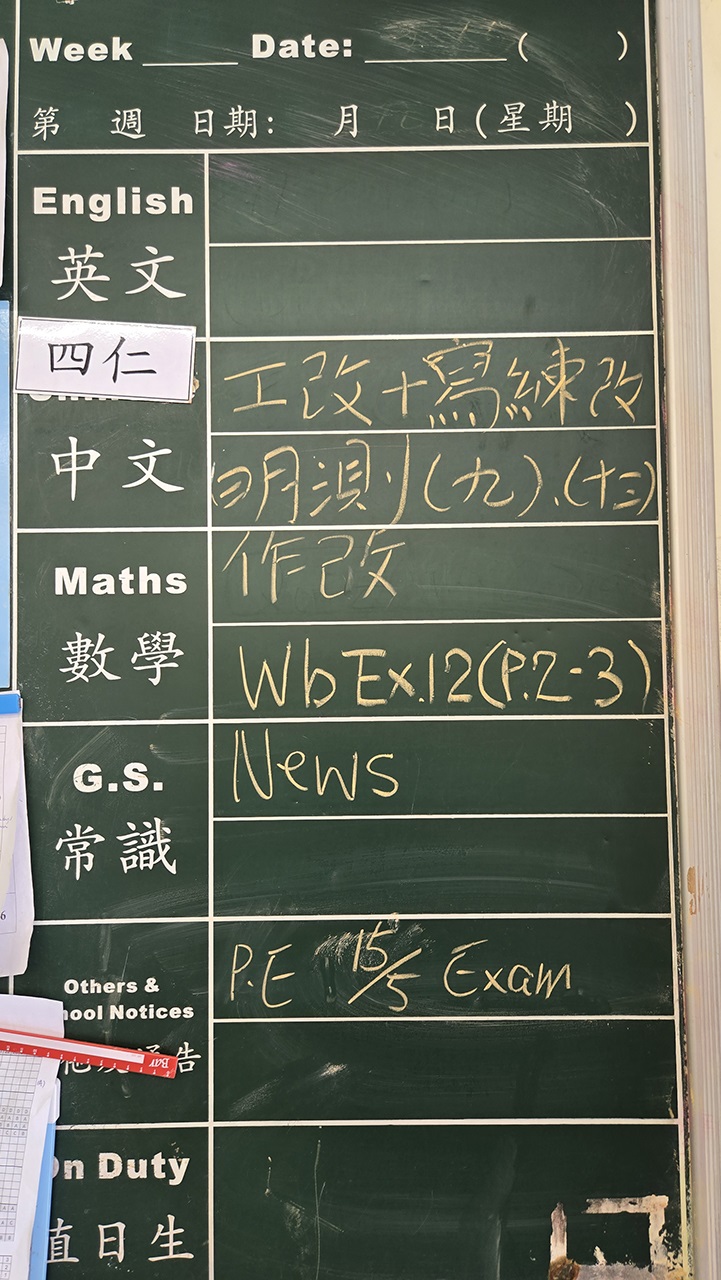 Week ____ Date: ______( )
第 週 日期: 月 日(星期 )
English
英文
四仁
工改+寫練改
中文
明測(九)、(十三)
Maths
作改
數學
Wb Ex.12(P.2-3)
G.S.
News
常識
Others &
P.E 15/5 Exam
hool Notices
通告
n Duty
直日生